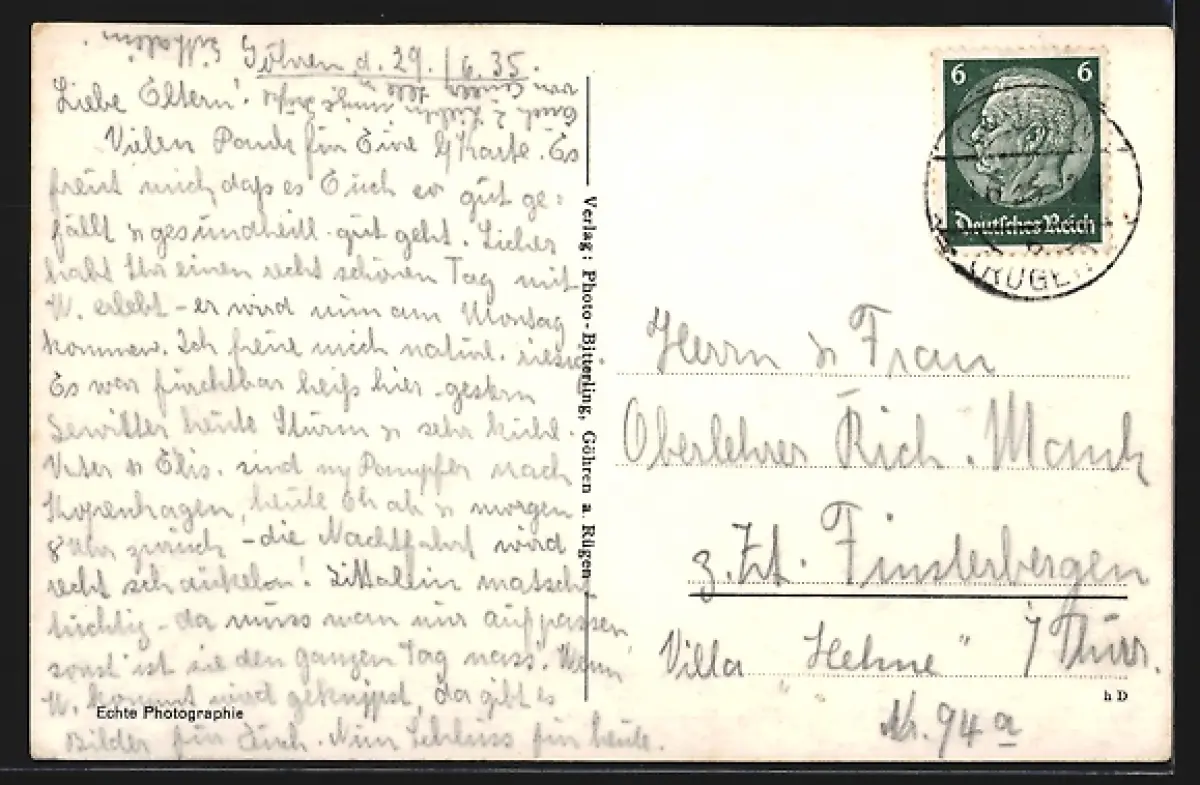 Göhren, d. 29./6.35.
Liebe Eltern!
Vielen Dank für Eure Karte. Es
freut mich, daß es Euch so gut ge=
fällt & gesundheitl. gut geht. Sicher
habt Ihr einen recht schönen Tag mit
W. erlebt - er wird nun am Montag
kommen. Ich freue mich natürl. riesig.
Es war furchtbar heiß hier - gestern
Gewitter heute Sturm & sehr kühl.
Vater & Elis. sind m/ Dampfer nach
Kopenhagen, heute ab & morgen
8 Uhr zurück - die Nachtfahrt wird
recht schaukeln! matscht
tüchtig - da muss man nur aufpassen
sonst ist sie den ganzen Tag nass. Wenn
W. kommt wird geknipst, da gibt es
Bilder für Euch. Nun Schluss für heute.
Euch 2
von Eurer
Echte Photographie
Verlag: Photo-Bitterling, Göhren a. Rügen
6 6
Deutsches Reich
(RÜGEN)
Herrn & Frau
Oberlehrer Rich. Mauk
z. Zt. Finsterbergen
Villa "Helene" i/ Thür.
Nr. 94a
h D